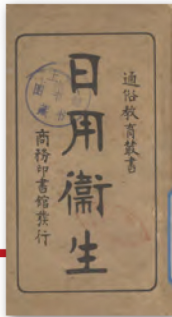 通俗教育叢書
日用衞生
商務印書館發行